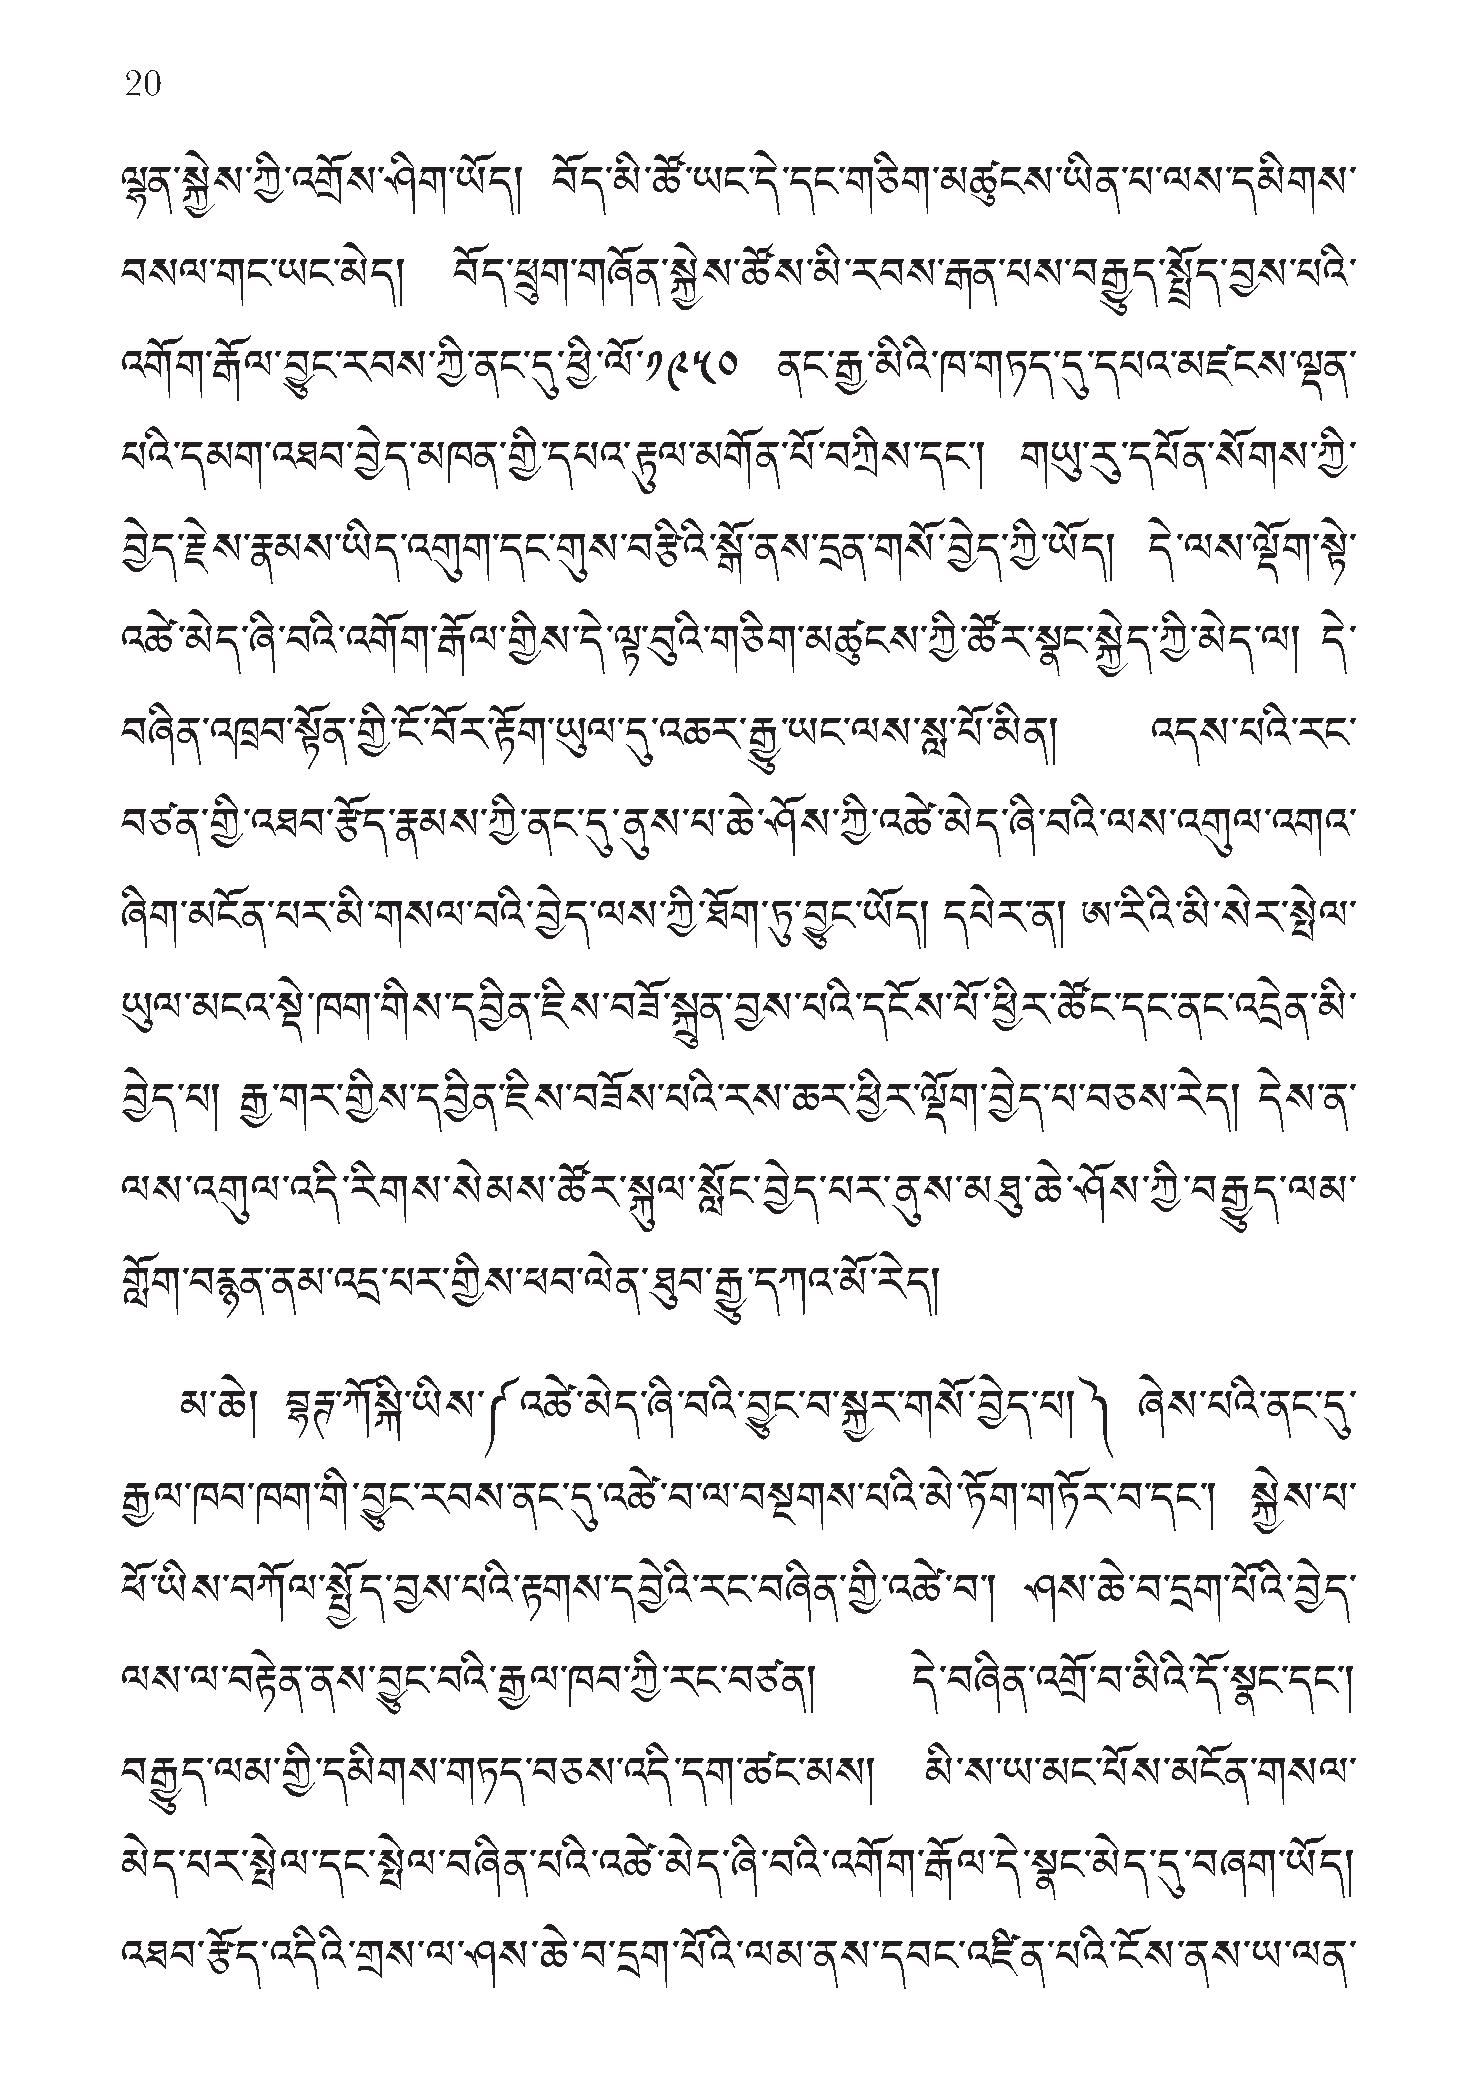 20
ལྷན་སྐྱེས་ཀྱི་འགྲོས་ཤིག་ཡོད། བོད་མི་ཚོ་ཡང་དེ་དང་གཅིག་མཚུངས་ཡིན་པ་ལས་དམིགས་
བསལ་གང་ཡང་མེད། བོད་ཕྲུག་གཞོན་སྐྱེས་ཚོས་མི་རབས་རྒན་པས་བརྒྱུད་སྤྲོད་བྱས་པའི་
འགོག་རྒོལ་བྱུང་རབས་ཀྱི་ནང་དུ་ཕྱི་ལོ་༡༩༥༠ ནང་རྒྱ་མིའི་ཁ་གཏད་དུ་དཔའ་མཛངས་ལྡན་
པའི་དམག་འཐབ་བྱེད་མཁན་གྱི་དཔའ་རྟུལ་མགོན་པོ་བཀྲིས་དང་། གཡུ་རུ་དཔོན་སོགས་ཀྱི་
བྱེད་རྗེས་རྣམས་ཡིད་འགུག་དང་གུས་བརྩིའི་སྒོ་ནས་དྲན་གསོ་བྱེད་ཀྱི་ཡོད། དེ་ལས་ལྡོག་སྟེ་
འཚེ་མེད་ཞི་བའི་འགོག་རྒོལ་གྱིས་དེ་ལྟ་བུའི་གཅིག་མཚུངས་ཀྱི་ཚོར་སྣང་སྐྱེད་ཀྱི་མེད་ལ། དེ་
བཞིན་འཁྲབ་སྟོན་གྱི་ངོ་བོར་རྟོག་ཡུལ་དུ་འཆར་རྒྱུ་ཡང་ལས་སླ་པོ་མིན། འདས་པའི་རང་
བཙན་གྱི་འཐབ་རྩོད་རྣམས་ཀྱི་ནང་དུ་ནུས་པ་ཆེ་ཤོས་ཀྱི་འཚེ་མེད་ཞི་བའི་ལས་འགུལ་འགའ་
ཞིག་མངོན་པར་མི་གསལ་བའི་བྱེད་ལས་ཀྱི་ཐོག་ཏུ་བྱུང་ཡོད། དཔེར་ན། ཨ་རིའི་མི་སེར་སྤེལ་
ཡུལ་མངའ་སྡེ་ཁག་གིས་དབྱིན་ཇིས་བཟོ་སྐྲུན་བྱས་པའི་དངོས་པོ་ཕྱིར་ཚོང་དང་ནང་འདྲེན་མི་
བྱེད་པ། རྒྱ་གར་གྱིས་དབྱིན་ཇིས་བཟོས་པའི་རས་ཆར་ཕྱིར་ལྡོག་བྱེད་པ་བཅས་རེད། དེས་ན་
ལས་འགུལ་འདི་རིགས་སེམས་ཚོར་སྐུལ་སློང་བྱེད་པར་ནུས་མཐུ་ཆེ་ཤོས་ཀྱི་བརྒྱུད་ལམ་
གློག་བརྙན་ནམ་འདྲ་པར་གྱིས་ཕབ་ལེན་ཐུབ་རྒྱུ་དཀའ་མོ་རེད།
མ་ཆེ། བྷརྟ་ཀོསྐི་ཡིས་༼འཚེ་མེད་ཞི་བའི་བྱུང་བ་སྐྱར་གསོ་བྱེད་པ།༽ ཞེས་པའི་ནང་དུ་
རྒྱལ་ཁབ་ཁག་གི་བྱུང་རབས་ནང་དུ་འཚེ་བ་ལ་བསྔགས་པའི་མེ་ཏོག་གཏོར་བ་དང་། སྐྱེས་པ་
ཕོ་ཡིས་བཀོལ་སྤྱོད་བྱས་པའི་རྟགས་དབྱེའི་རང་བཞིན་གྱི་འཚེ་བ་། ཤས་ཆེ་བ་དྲག་པོའི་བྱེད་
ལས་ལ་བརྟེན་ནས་བྱུང་བའི་རྒྱལ་ཁབ་ཀྱི་རང་བཙན། དེ་བཞིན་འགྲོ་བ་མིའི་དོ་སྣང་དང་།
བརྒྱུད་ལམ་གྱི་དམིགས་གཏད་བཅས་འདི་དག་ཚང་མས། མི་ས་ཡ་མང་པོས་མངོན་གསལ་
མེད་པར་སྤེལ་དང་སྤེལ་བཞིན་པའི་འཚེ་མེད་ཞི་བའི་འགོག་རྒོལ་དེ་སྣང་མེད་དུ་བཞག་ཡོད།
འཐབ་རྩོད་འདིའི་གྲས་ལ་ཤས་ཆེ་བ་དྲག་པོའི་ལམ་ནས་དབང་འཛིན་པའི་ངོས་ནས་ཡ་ལན་